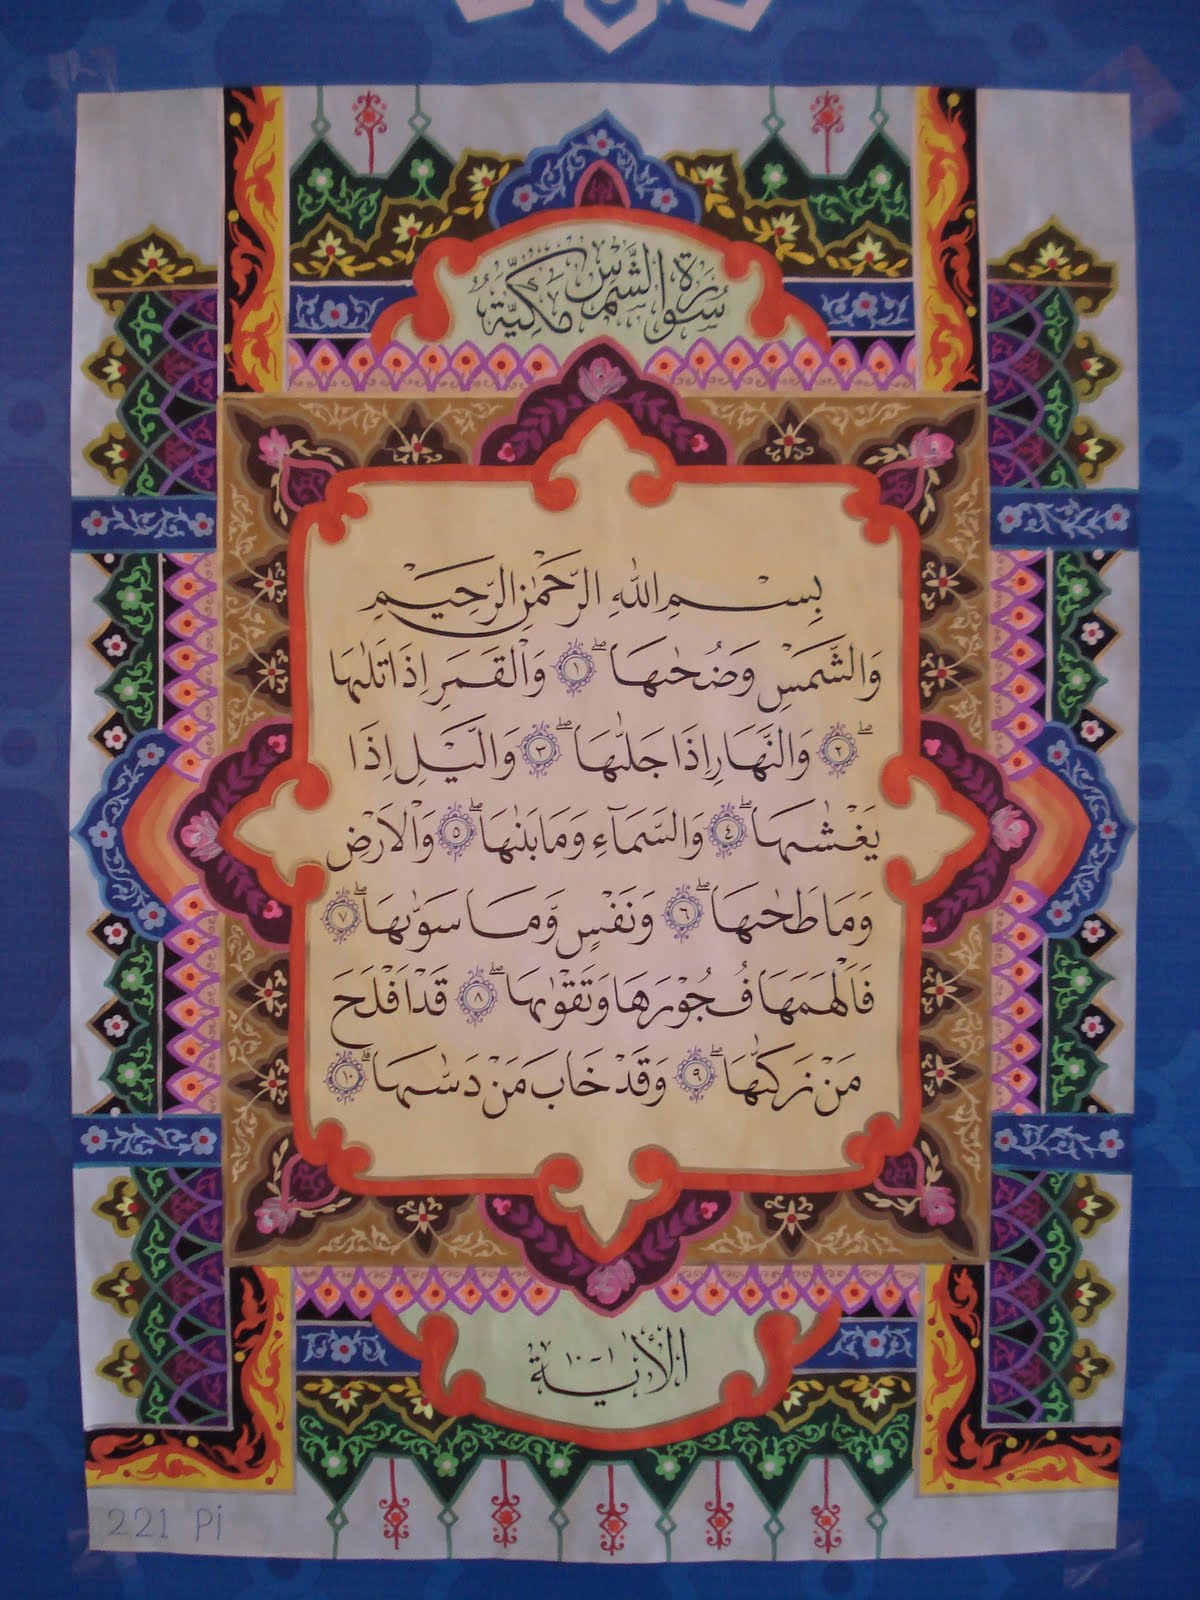 سُورَةُ الشَّمْسِ مَكِّيَّةٌ
بِسْمِ اللهِ الرَّحْمٰنِ الرَّحِيْمِ
وَالشَّمْسِ وَضُحٰىهَا ۖ ﴿١﴾ وَالْقَمَرِ اِذَا تَلٰىهَا
ۖ ﴿٢﴾ وَالنَّهَارِ اِذَا جَلّٰىهَا ۖ ﴿٣﴾ وَالَّيْلِ اِذَا
يَغْشٰىهَا ۖ ﴿٤﴾ وَالسَّمَاۤءِ وَمَا بَنٰىهَا ۖ ﴿٥﴾ وَالْاَرْضِ
وَمَا طَحٰىهَا ۖ ﴿٦﴾ وَنَفْسٍ وَّمَا سَوّٰىهَا ۖ ﴿٧﴾
فَاَلْهَمَهَا فُجُوْرَهَا وَتَقْوٰىهَا ۖ ﴿٨﴾ قَدْ اَفْلَحَ
مَنْ زَكّٰىهَا ۖ ﴿٩﴾ وَقَدْ خَابَ مَنْ دَسّٰىهَا ۗ ﴿١٠﴾
الْاٰيَة ١-١٠
221 Pi